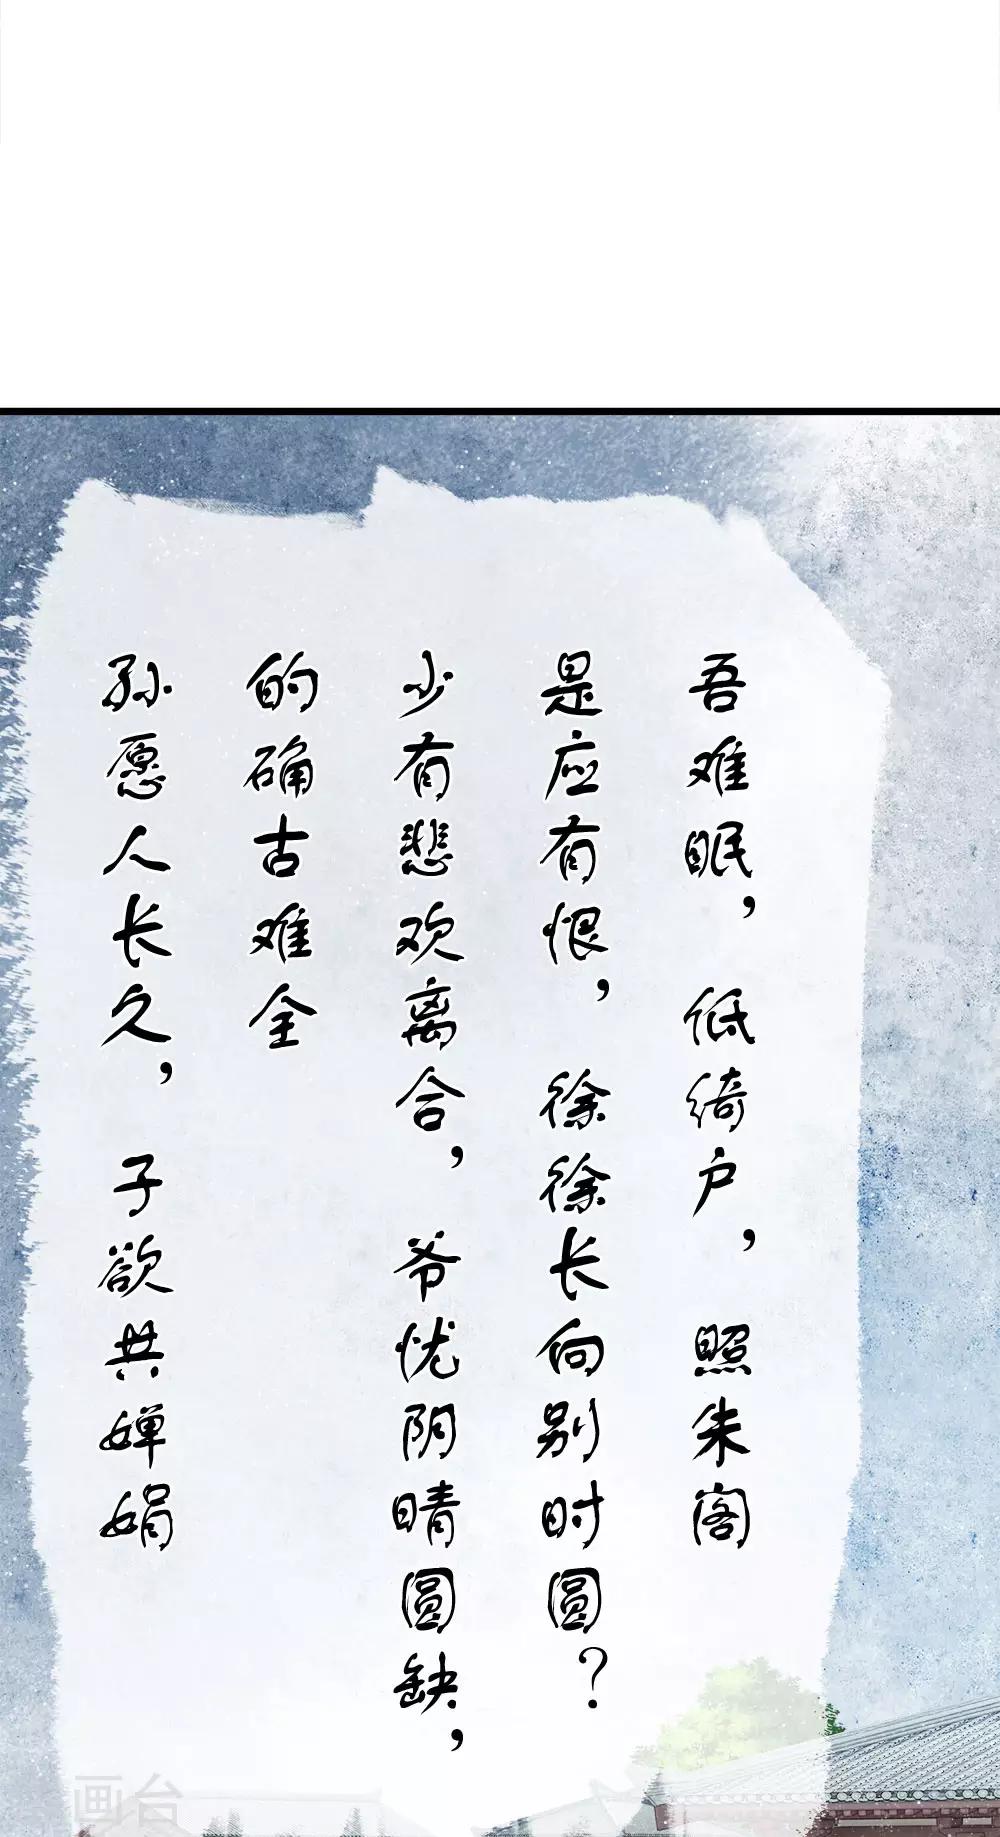 吾难眠，低绮户，照朱阁
是应有恨，徐徐长向别时圆？
少有悲欢离合，爷忧阴晴圆缺，
的确古难全
孙愿人长久，子欲共婵娟
画台